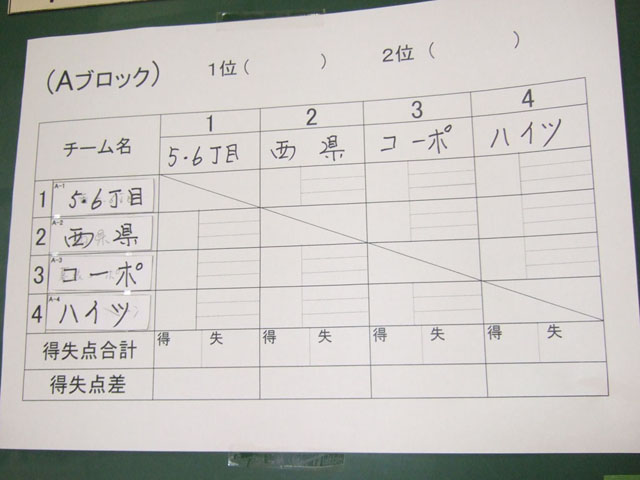 (Aブロック) 1位( ) 2位( )
チーム名 1 2 3 4
5.6丁目 西県 コーポ ハイツ
1 A-1 5.6丁目
2 A-2 西県
3 A-3 コーポ
4 A-4 ハイツ
得失点合計 得 失 得 失 得 失 得 失
得失点差